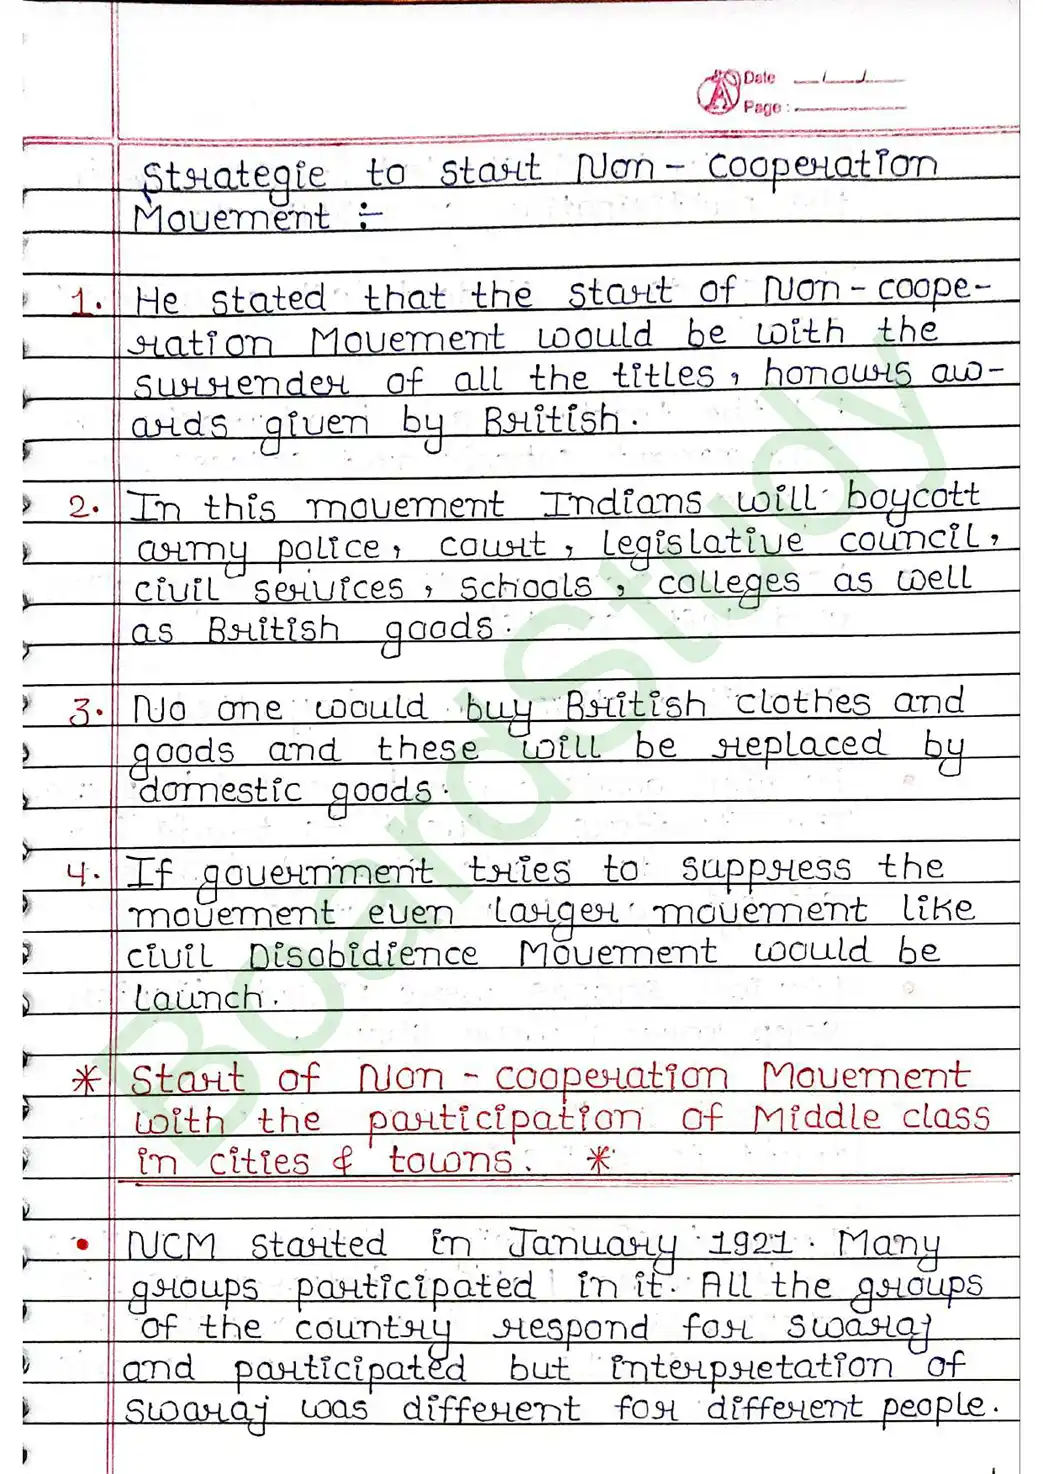 Date
Page :
Strategie to start Non - cooperation
Movement :-
1. He stated that the start of Non - coope-
ration Movement would be with the
surrender of all the titles, honours aw-
ards given by British.
2. In this movement Indians will boycott
army police, court, legislative council,
civil services, schools, colleges as well
as British goods.
3. No one would buy British clothes and
goods and these will be replaced by
domestic goods.
4. If government tries to suppress the
movement even larger movement like
civil Disobidience Movement would be
launch.
* Start of Non - cooperation Movement
with the participation of Middle class
in cities & towns. *
• NCM started in January 1921. Many
groups participated in it. All the groups
of the country respond for swaraj
and participated but interpretation of
swaraj was different for different people.
BoardStudy